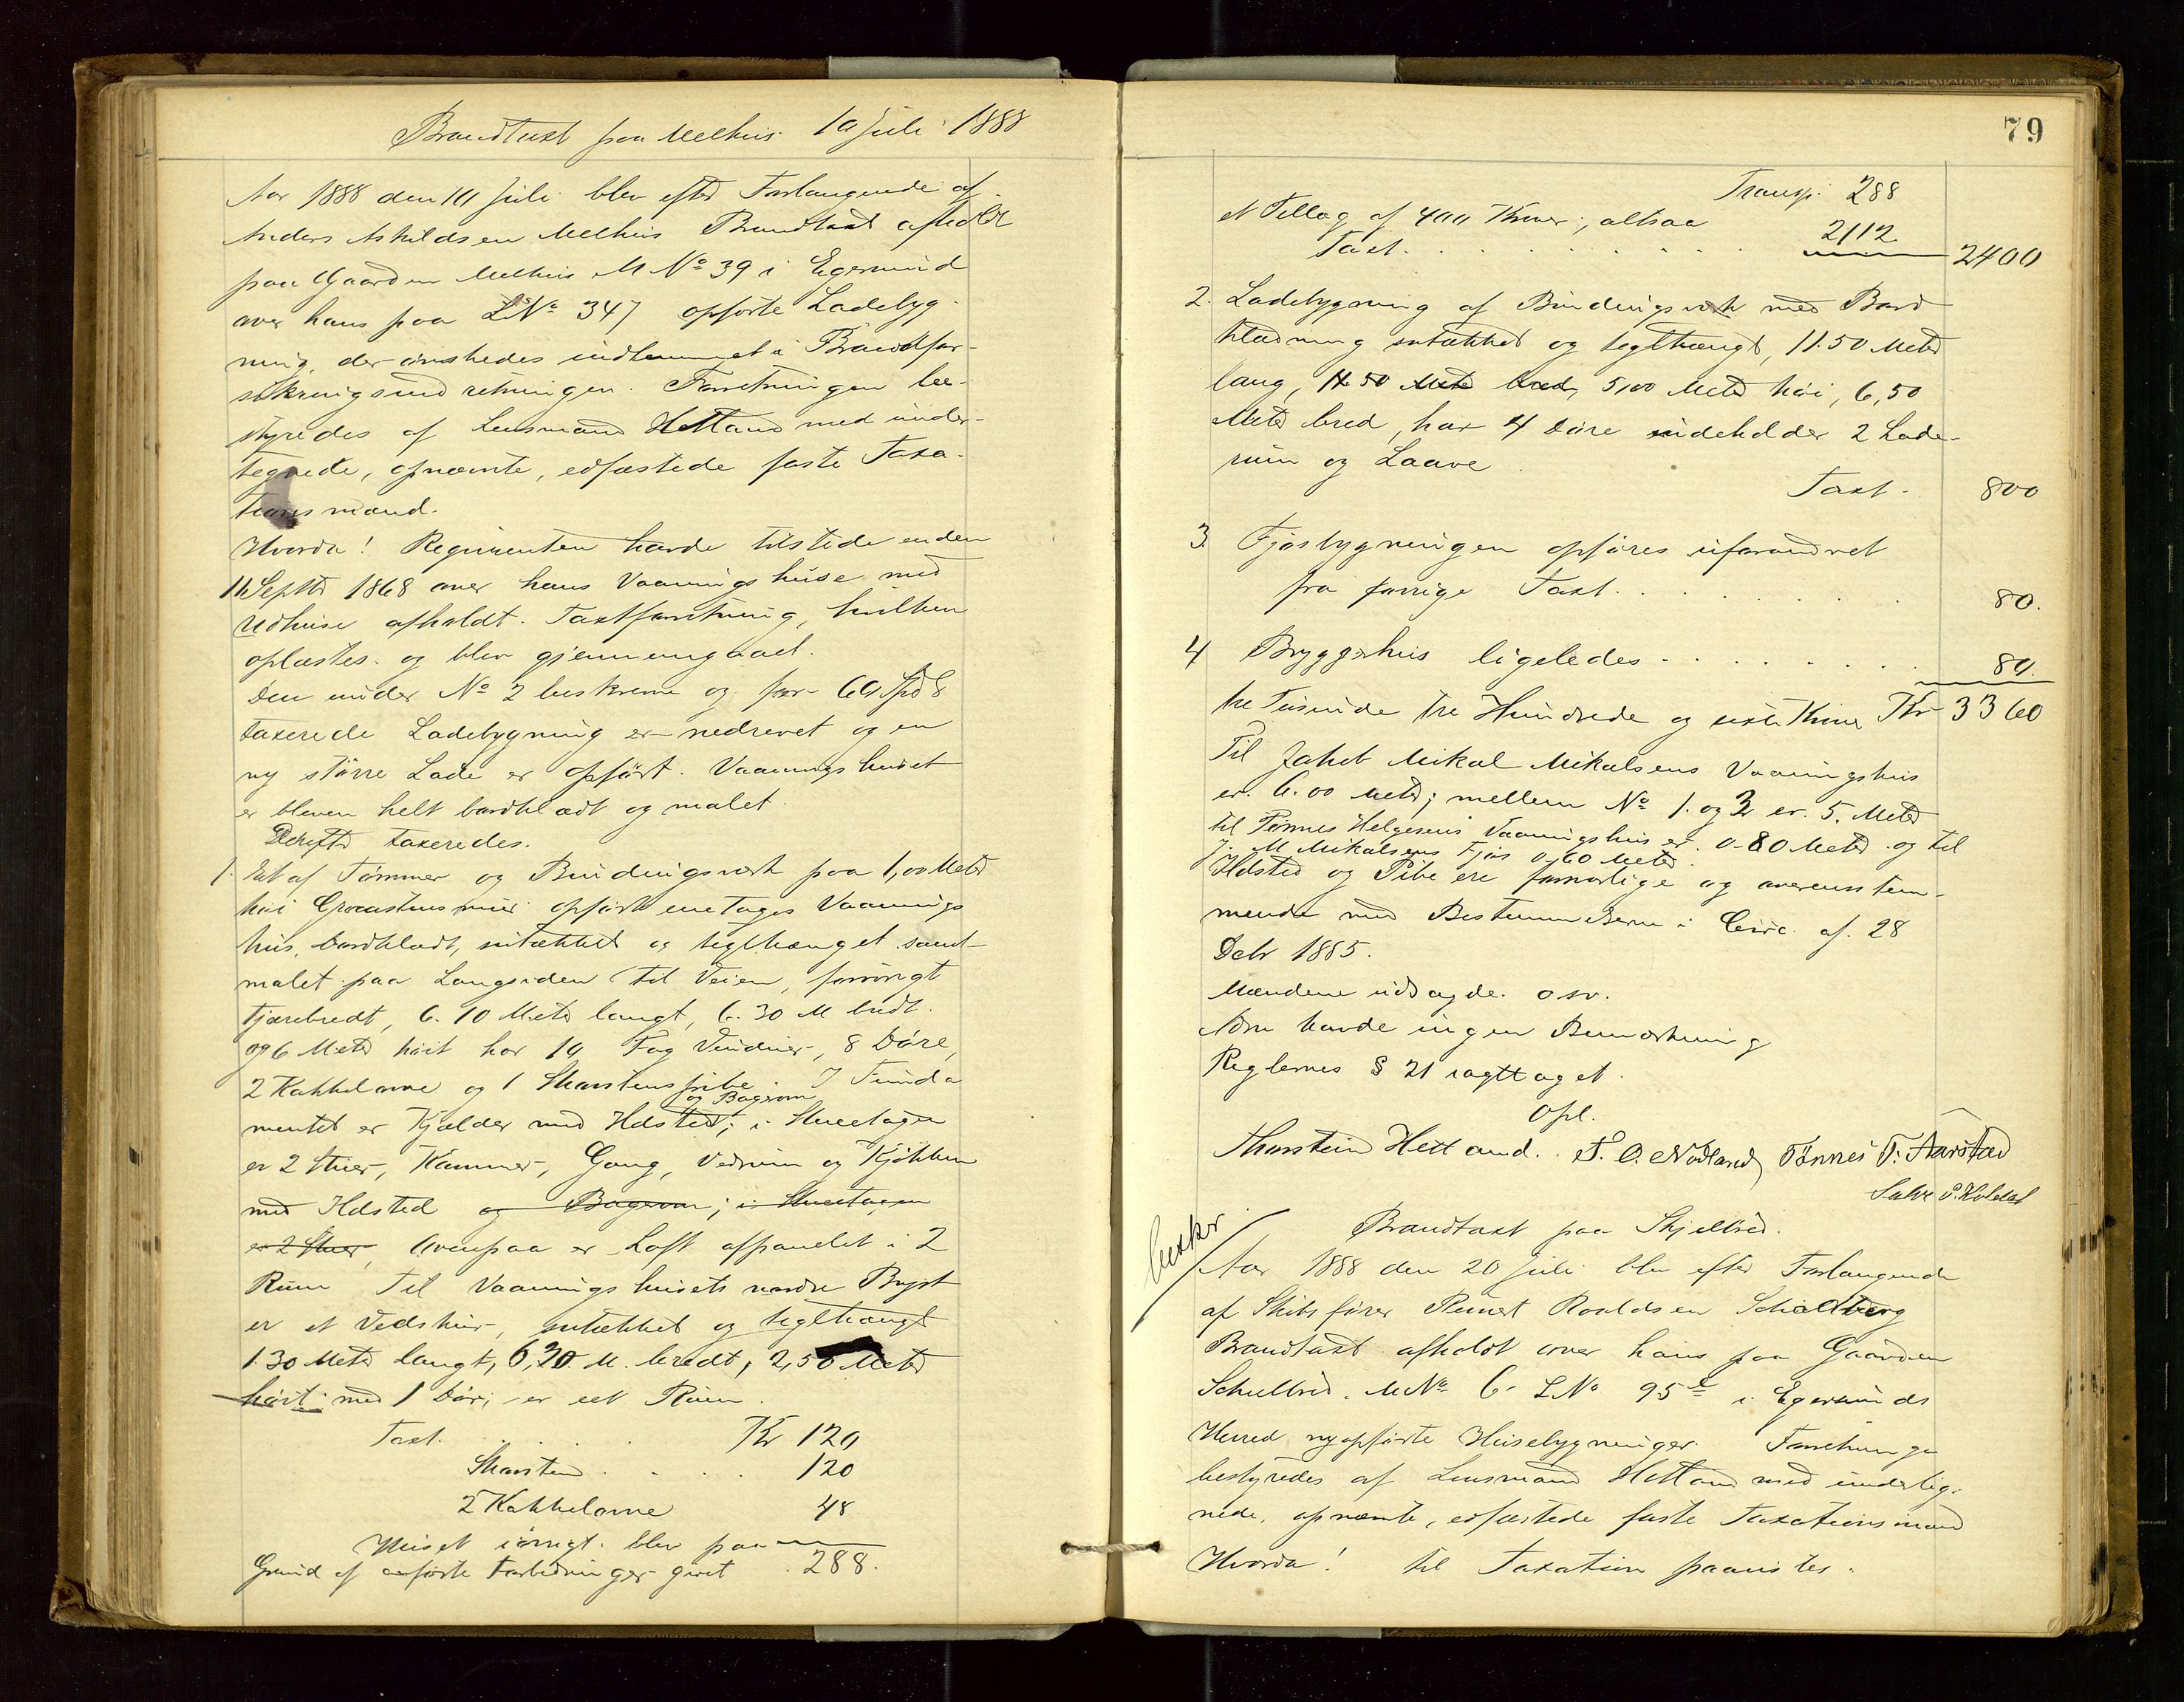 Brandtaxt paa Melhus 10 Juli 1888
Aar 1888 den 10 Juli blev efter Forlangende af
Anders Askildsen Melhus Brandtaxt afholdt
paa Gaarden Melhus M No 39 i Egersund
over hans paa LNo 347 opførte Ladebyg-
ning, der ønskedes indlemmet i Brandfor-
sikringsindretningen. Forretningen be-
styredes af Lensmand Hetland med under-
tegnede, opnævnte, edfæstede faste Taxa-
tionsmænd.
Hvorda! Reqvirenten havde tilstede en den
11 Septbr 1868 over hans Vaaningshuse med
Udhuse afholdt Taxtforretning, hvilken
oplæstes og blev gjennemgaaet.
Den under No 2 beskrevne og for 60 Spd
taxerede Ladebygning er nedrevet og en
ny større Lade er opført. Vaaningshuset
er bleven helt bordklædt og malet.
Derefter taxeredes.
1. Et af Tømmer og Bindingsværk paa 1,00 Meter
høi Graastensmur opført enetages Vaanings
hus, bordklædt, sutækket og teglhænget samt
malet paa Langsiden til Veien, forøvrigt
tjærebredt, 6.10 Meter langt, 6.30 M bredt
og 6 Meter høit har 10 Fag Vinduer, 8 Døre,
2 Kakkelovne og 1 Skorstenspibe. I Funda
og Bagerovn
mentet er Kjælder med Ildsted; i Stueetagen
er 2 Stuer, Kammer, Gang, Vedrum og Kjøkken
med Ildsted og Bagerovn; i Stueetagen
er 2 Stuer, Ovenpaa er Loft afpanelet i 2
Rum Til Vaaningshusets nordre Bryst
er et Vedskur, sutækket og teglhængt
1.30 Meter langt, 6,30 M. bredt, 2,50 Meter
høit med 1 Dør; er eet Rum.
Taxt. Kr 120
Skorsten 120
2 Kakkelovne 48
Huset iøvrigt blev paa
Grund af anførte Forbedringer givet 288.
79
Transp. 288
et Tillæg af 400 Kroner; altsaa 2112
Taxt. 2400
2. Ladebygning af Bindingsverk med Bord
klædning sutækket og teglhængt, 11.50 Meter
lang, 11.50 Meter bred, 5,00 Meter høi, 6,50
Meter bred, har 4 Døre indeholder 2 Lade-
rum og Laave.
Taxt. 800
3. Fjøsbygningen opføres uforandret
fra forrige Taxt. 80.
4 Bryggerhus ligeledes 80.
tre Tusinde tre Hundrede og sexti Kroner Kr 3360
Til Jakob Mikal Mikalsens Vaaningshus
er 6.00 Meter; mellem No 1. og 3 er 5. Meter
til Tønnes Helgesens Vaaningshus er 0.80 Meter og til
J. M Mikalsens Fjøs 0.60 Meter.
Ildsted og Pibe ere forsvarlige og overensstem-
mende med Bestemmelserne i Circ. af 28
Debr 1885.
Mændene udsagde osv.
Adm havde ingen Bemærkning
Reglernes § 21 iagttaget.
Opl.
Thorstein Hetland. S. O. Nodland Tønnes T. Aarstad
Salve
bexkr
Brandtaxt paa Skjelbred.
Aar 1888 den 20 Juli blev efter Forlangende
af Skibsfører Reinert Roaldsen
Brandtaxt afholdt over hans paa Gaarden
Schelbred. MNo 6 LNo 95 i Egersunds
Herred nyopførte Husebygninger. Forretningen
bestyredes af Lensmand Hetland med underteg-
nede, opnævnte, edfæstede faste Taxationsmænd
Hvorda! til Taxation paavistes.